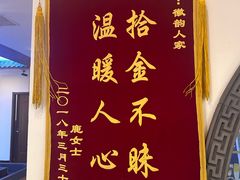 徽韵人家
拾金不昧
温暖人心
鹿女士
二〇一八年三月三十